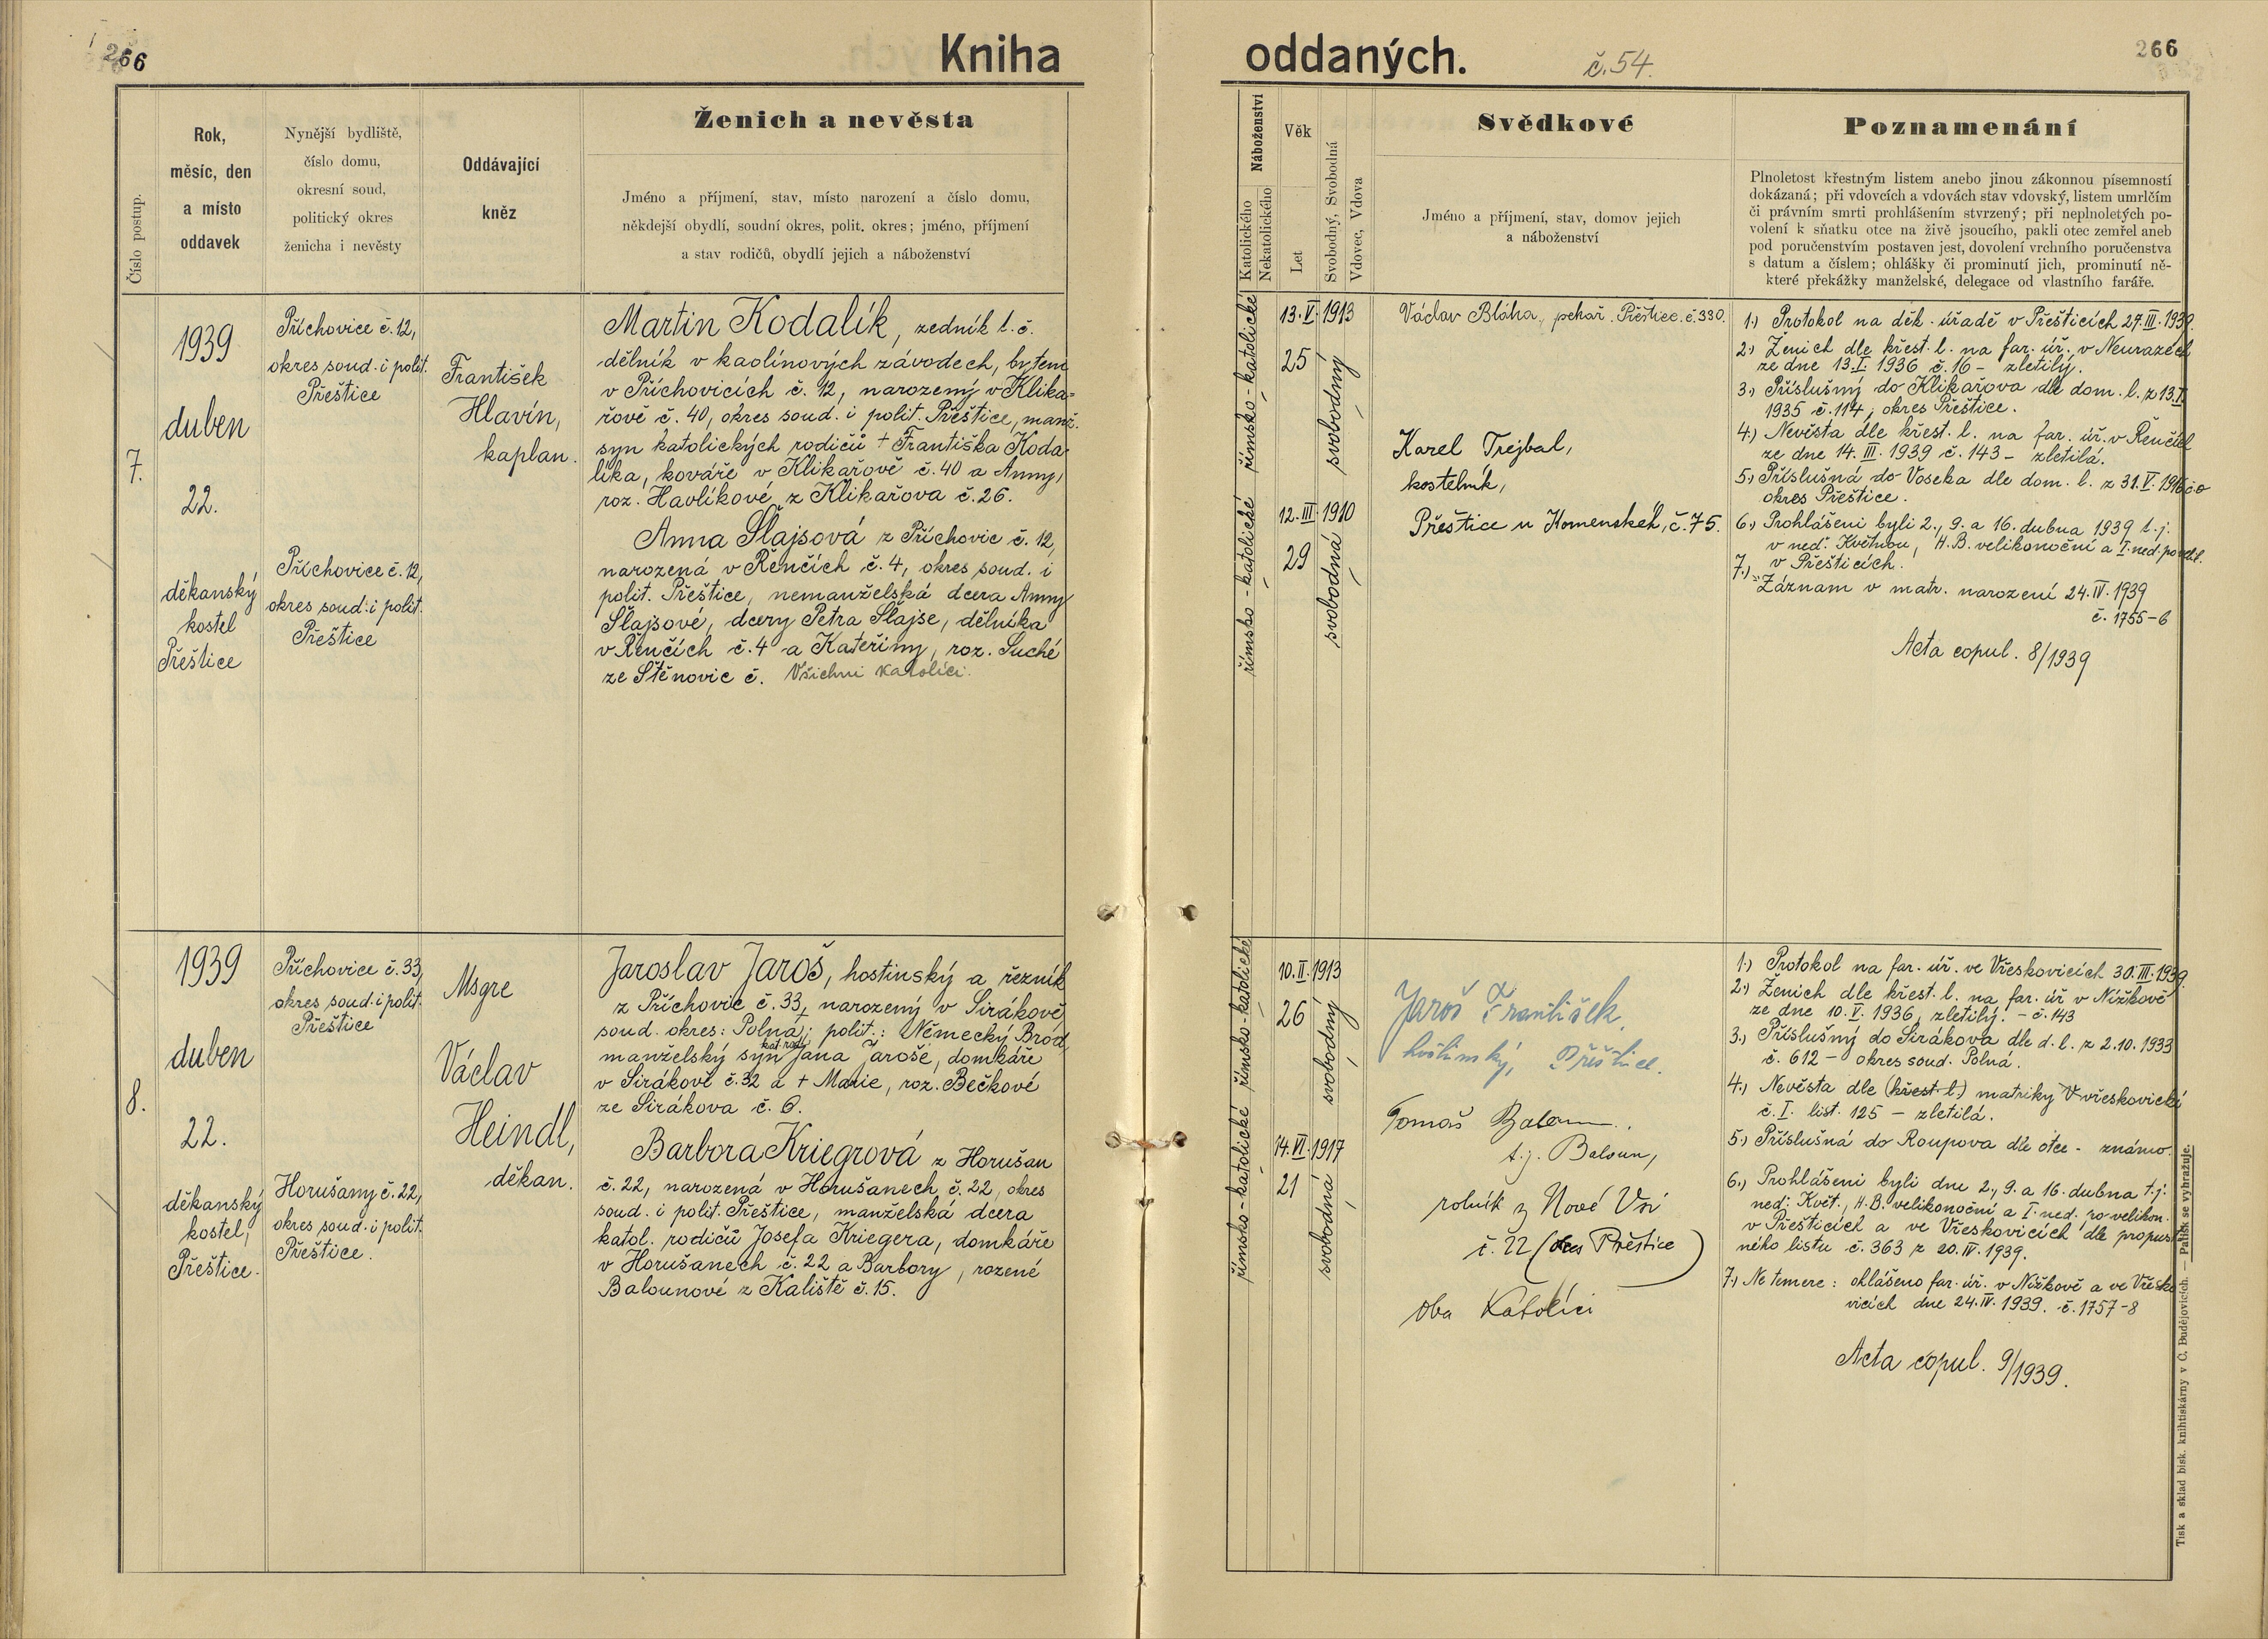 266
Kniha
oddaných.
č. 54.
266
Číslo postup.
Rok,
měsíc, den
a místo
oddavek
Nynější bydliště,
číslo domu,
okresní soud,
politický okres
ženicha i nevěsty
Oddávající
kněz
Ženich a nevěsta
Jméno a příjmení, stav, místo narození a číslo domu,
někdejší obydlí, soudní okres, polit. okres; jméno, příjmení
a stav rodičů, obydlí jejich a náboženství
Náboženství
Katolického
Nekatolického
Věk
Let
Svobodný, Svobodná
Vdovec, Vdova
Svědkové
Jméno a příjmení, stav, domov jejich
a náboženství
Poznamenání
Plnoletost křestným listem anebo jinou zákonnou písemností
dokázaná; při vdovcích a vdovách stav vdovský, listem umrlčím
či právním smrti prohlášením stvrzený; při neplnoletých po-
volení k sňatku otce na živě jsoucího, pakli otec zemřel aneb
pod poručenstvím postaven jest, dovolení vrchního poručenstva
s datum a číslem; ohlášky či prominutí jich, prominutí ně-
které překážky manželské, delegace od vlastního faráře.
7.
1939
duben
22.
děkanský
kostel
Přeštice
Příchovice č. 12,
okres soud. i polit.
Přeštice
Příchovice č. 12,
okres soud. i polit.
Přeštice
František
Hlavín,
kaplan.
Martin Kodalík, zedník t. č.
dělník v kaolínových závodech, bytem
v Příchovicích č. 12, narozený v Klika-
řově č. 40, okres soud. i polit. Přeštice, manž.
syn katolických rodičů + Františka Koda-
líka, kováře v Klikařově č. 40 a Anny,
roz. Havlíkové z Klikařova č. 26.
Anna Šlajsová z Příchovic č. 12,
narozená v Řenčích č. 4, okres soud. i
polit. Přeštice, nemanželská dcera Anny
Šlajsové, dcery Petra Šlajse, dělníka
v Řenčích č. 4 a Kateřiny, roz. Suché
ze Štěnovic č. Všichni katolíci.
římsko-katolické
římsko-katolické
13. V. 1913
25
12. III. 1910
29
svobodný
svobodná
Václav Bláha, pekař. Přeštice č. 330.
Karel Trejbal,
kostelník,
Přeštice u Komenskéh, č. 75.
1.) Protokol na děk. úřadě v Přešticích 27. III. 1939.
2.) Ženich dle křest. l. na far. úř. v Neurazech
ze dne 13. I. 1936 č. 16 - zletilý.
3.) Příslušný do Klikařova dle dom. l. z 13. I.
1935 č. 114, okres Přeštice.
4.) Nevěsta dle křest. l. na far. úř. v Řenčích
ze dne 14. III. 1939 č. 143 - zletilá.
5.) Příslušná do Voseka dle dom. l. z 31. V.
okres Přeštice.
6.) Prohlášeni byli 2., 9. a 16. dubna 1939 t. j.
v neď. Květnou, H. B. velikonoční a I. ned.
v Přešticích.
7.) Záznam v matr. narození 24. IV. 1939
č. 1755-6
Acta copul. 8/1939
8.
1939
duben
22.
děkanský
kostel,
Přeštice.
Příchovice č. 33,
okres soud. i polit.
Přeštice
Horušany č. 22,
okres soud. i polit.
Přeštice.
Msgre
Václav
Heindl,
děkan.
Jaroslav Jaroš, hostinský a řezník
z Příchovic č. 33, narozený v Sirákově
soud. okres: Polná; polit.: Německý Brod,
kat. rod.
manželský syn Jana Jaroše, domkáře
v Sirákově č. 32 a + Marie, roz. Bečkové
ze Sirákova č. 6.
Barbora Kriegrová z Horušan
č. 22, narozená v Horušanech č. 22, okres
soud. i polit. Přeštice, manželská dcera
katol. rodičů Josefa Kriegera, domkáře
v Horušanech č. 22 a Barbory, rozené
Balounové z Kaliště č. 15.
římsko-katolické
římsko-katolické
10. II. 1913
26
14. VI. 1917
21
svobodný
svobodná
Jaroš František,
hostinský, Přeštice.
Tomáš Baloun.
t. j. Baloun,
rolník z Nové Vsi
č. 22 (okres Přeštice)
Oba Katolíci
1.) Protokol na far. úř. ve Vřeskovicích 30. III. 1939.
2.) Ženich dle křest. l. na far. úř v Nížkově
ze dne 10. V. 1936, zletilý. - č. 143
3.) Příslušný do Sirákova dle d. l. z 2.10.1933
č. 612 - okres soud. Polná.
4.) Nevěsta dle (křest. l.) matriky Vřeskovické
č. I. list. 125 - zletilá.
5.) Příslušná do Roupova dle otce - známo.
6.) Prohlášeni byli dne 2., 9. a 16. dubna t. j.
ned: Květ., H. B. velikonoční a I. ned. po velikon.
v Přešticích a ve Vřeskovicích dle propust-
ného listu č. 363 z 20. IV. 1939.
7.) Ne temere: ohlášeno far. úř. v Nížkově a ve Vřesko-
vicích dne 24. IV. 1939. č. 1757-8
Acta copul. 9/1939.
Tisk a sklad bisk. knihtiskárny v Č. Budějovicích. — Patisk se vyhražuje.